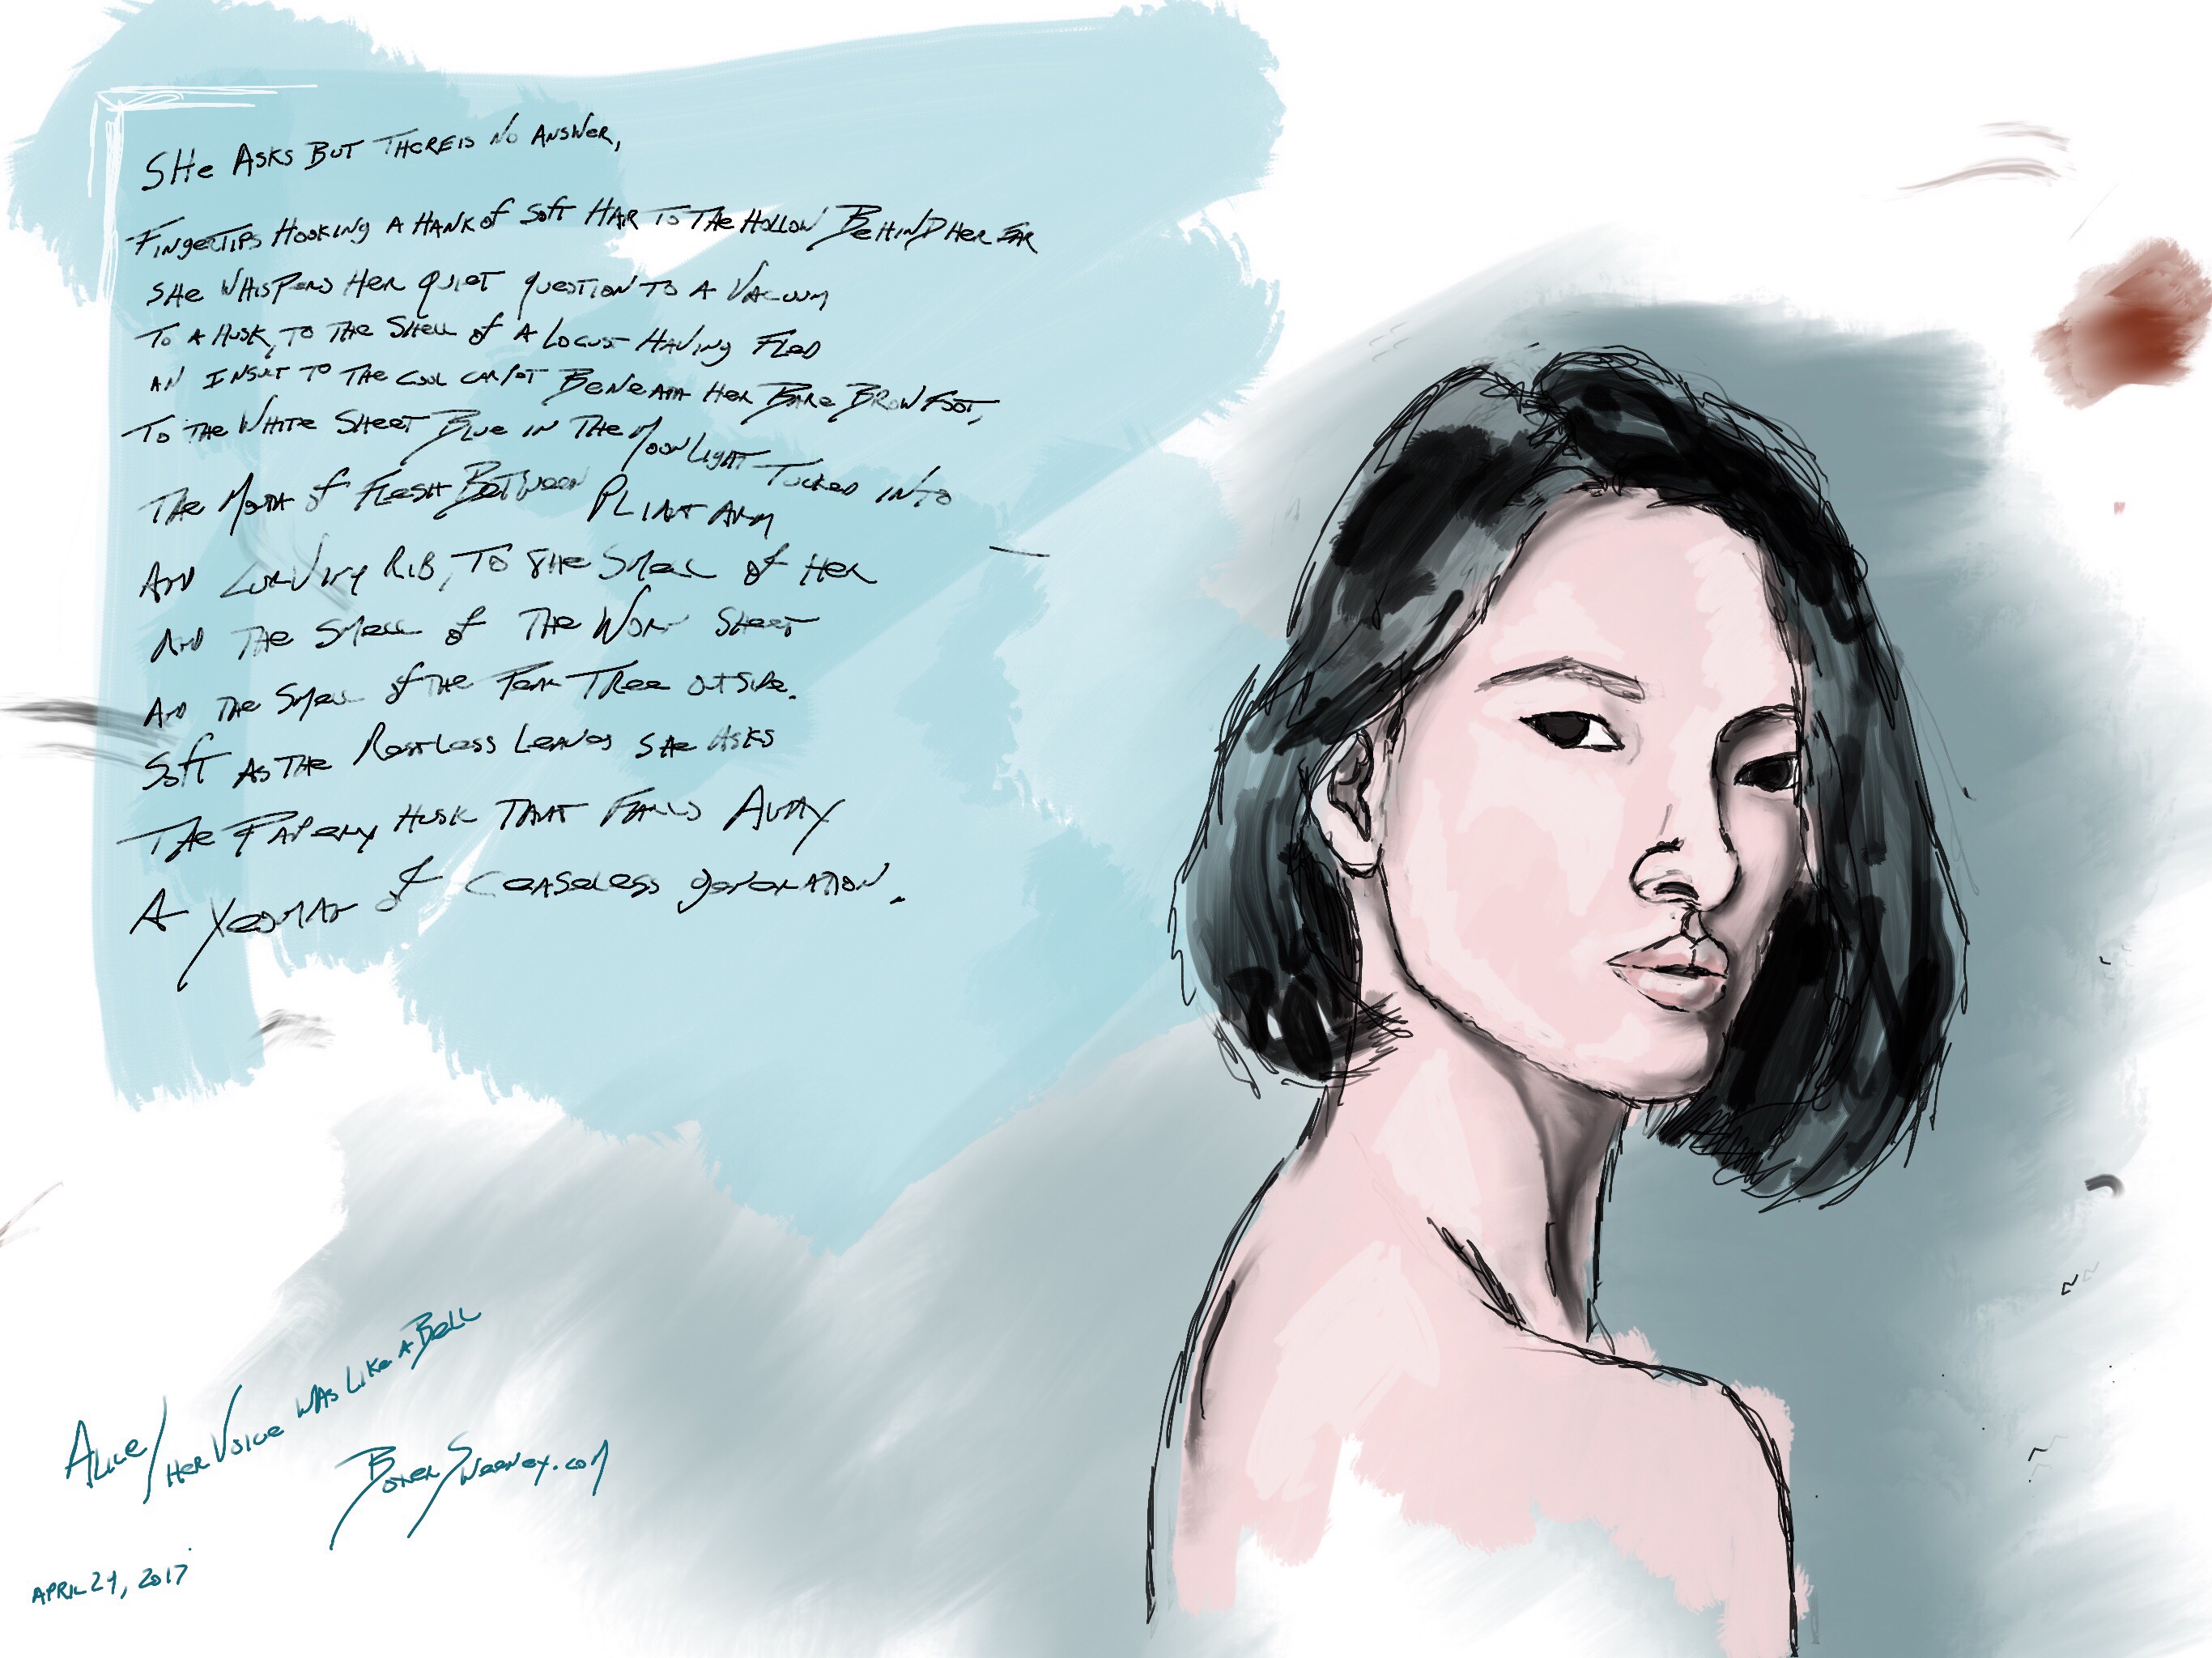 SHe ASKS BUT THERE IS No ANSWER,
FINGERTIPS HOOKING A HANK of Soft HAIR To THe HOLLOW BeHIND HER EAR
SHe WHISPERS HER QUIET QUESTION TO A VACUUM
To A HUSK, TO THe SHeLL of A LOCUST HAVING FLED
AN INSULT TO THe COOL CARPET BENEATH HER BARE BROWN FOOT,
To THe WHITE SHEET BLUE IN THe MOONLIGHT TUCKED INTO
THe MOUTH of FLESH BETWEEN PLIANT ARM
AND CURVING RIB, TO THe SMELL of HER
AND THe SMELL of THe WORN SHEET
AND THe SMELL of THe TREE OUTSIDE.
Soft AS THe RESTLESS LEAVES SHe ASKS
THe PAPERY HUSK THAT FALLS AWAY
A YEOMAN of CEASELESS GENERATION.
ALICE/HER VOICE WAS LIKE A BELL
SWEENEY.COM
APRIL 24, 2017